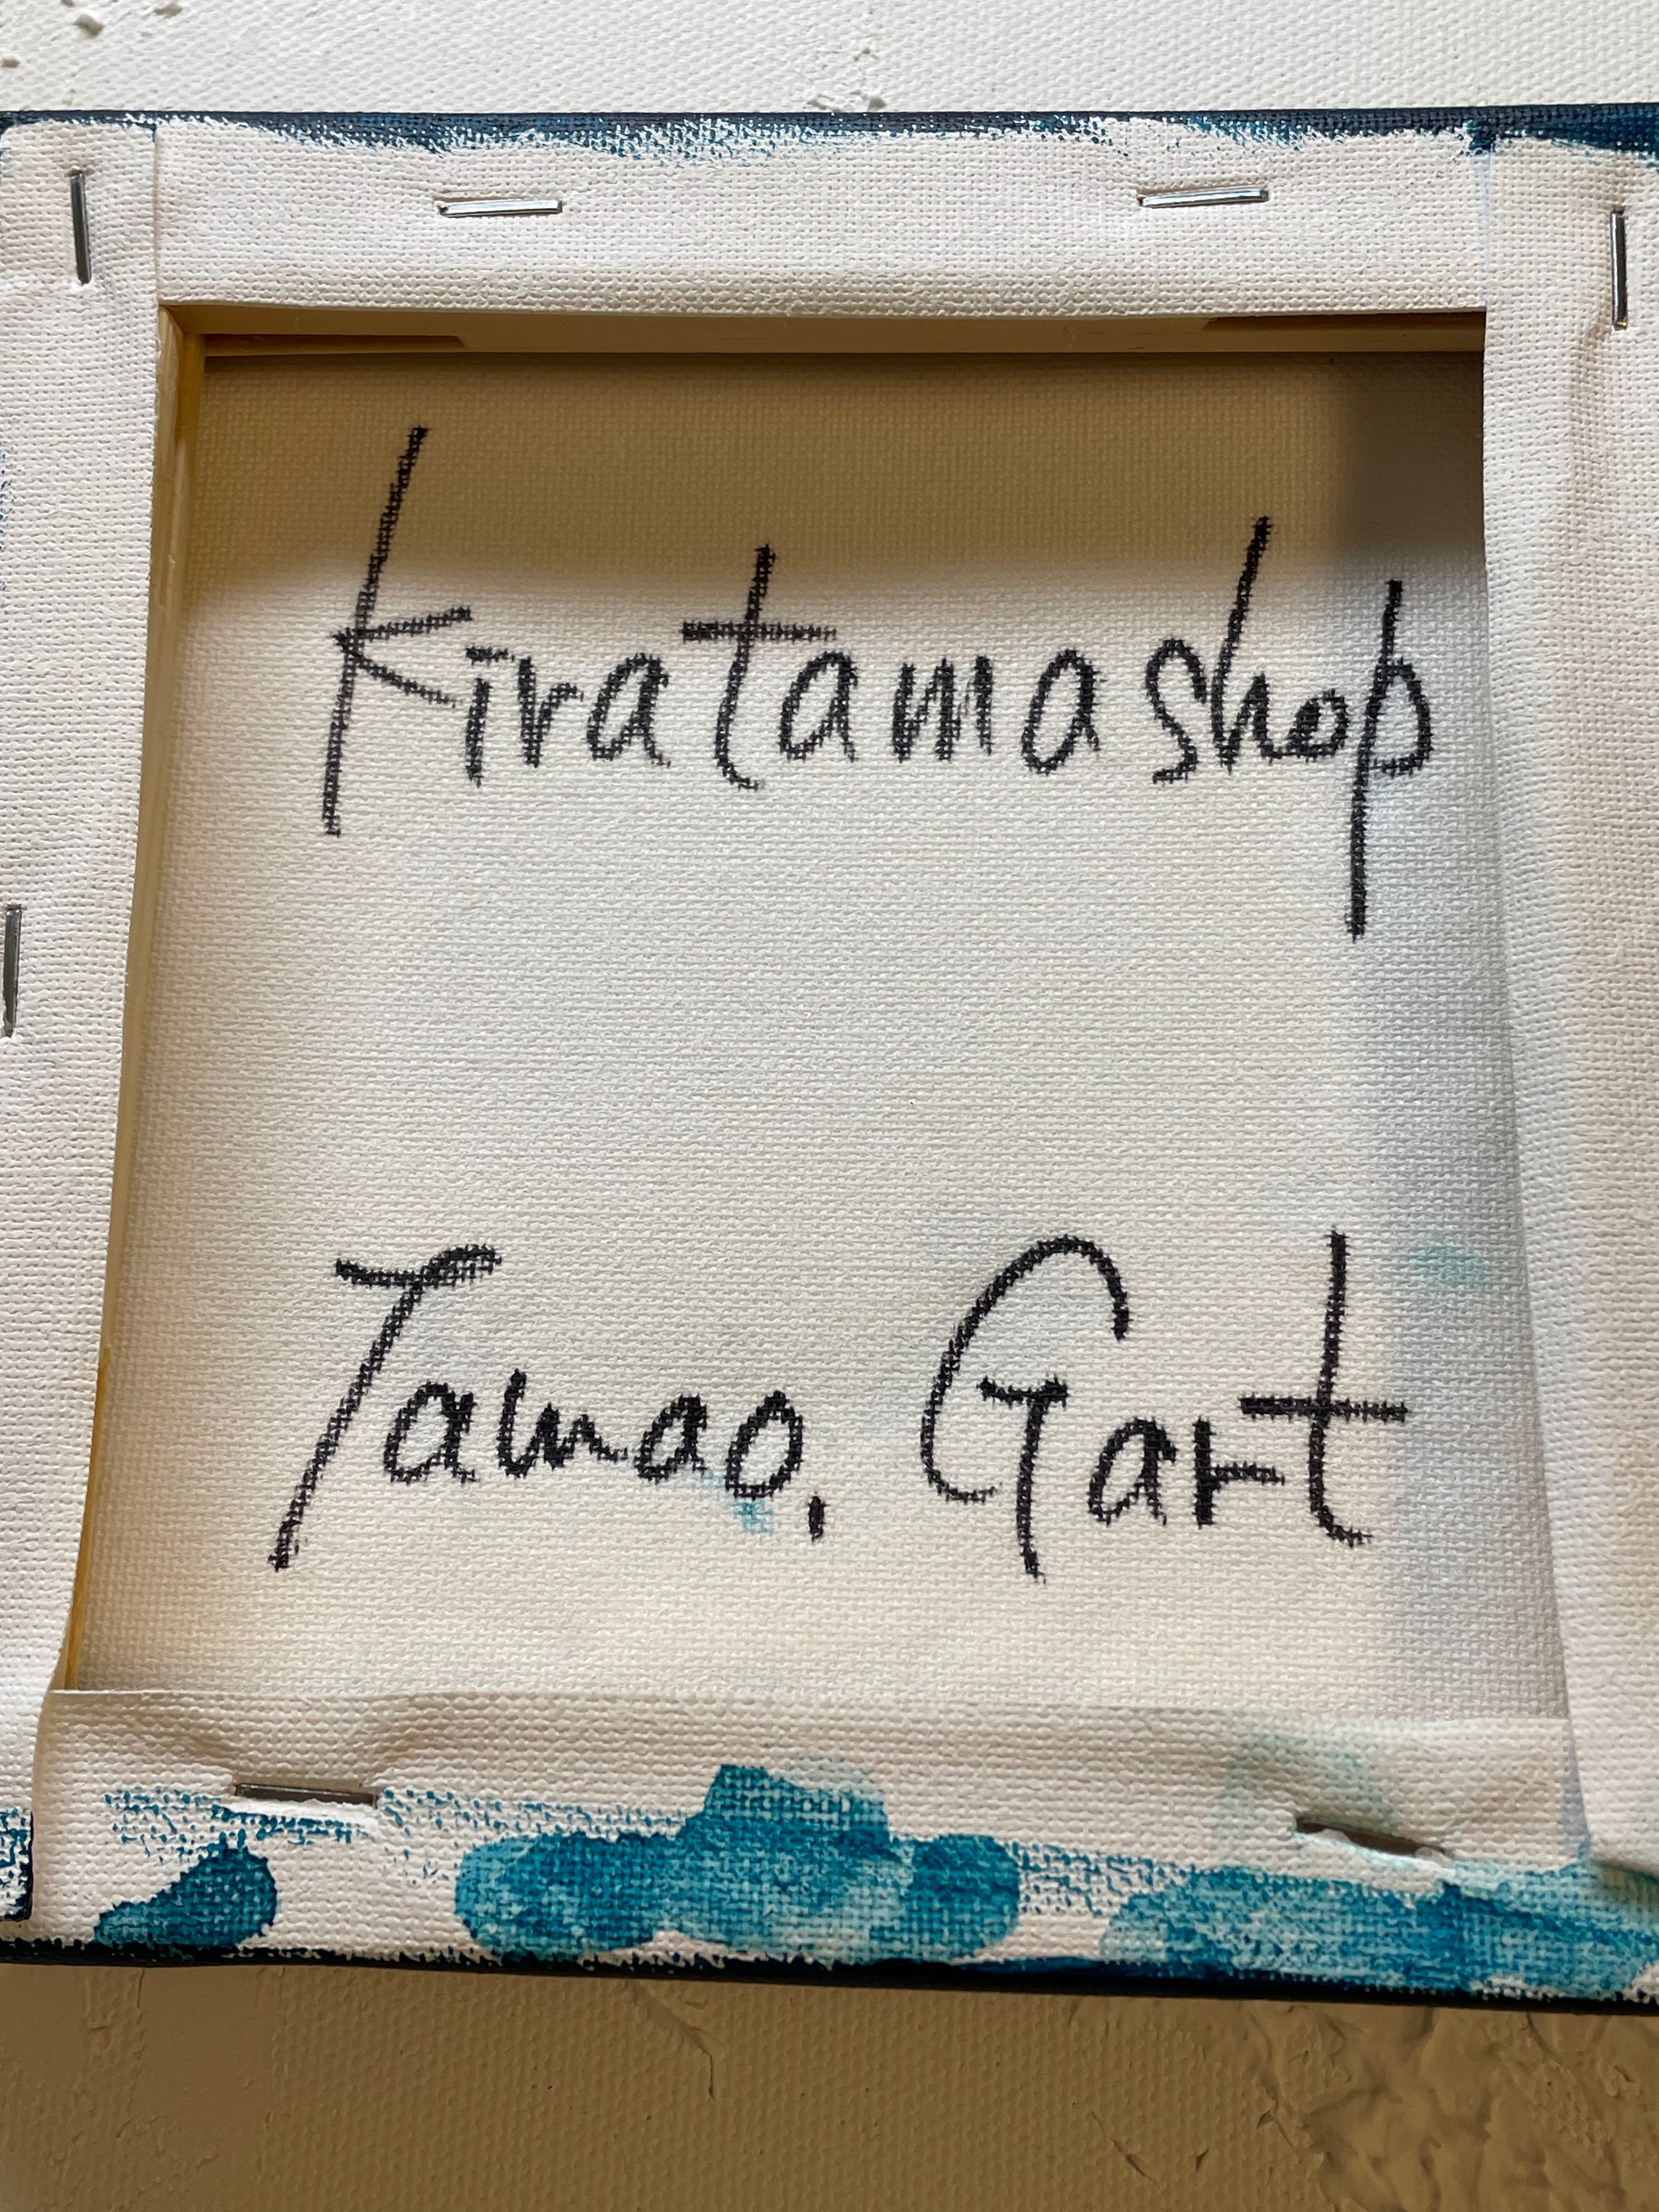 Kiratamashop
Tamao. Gart